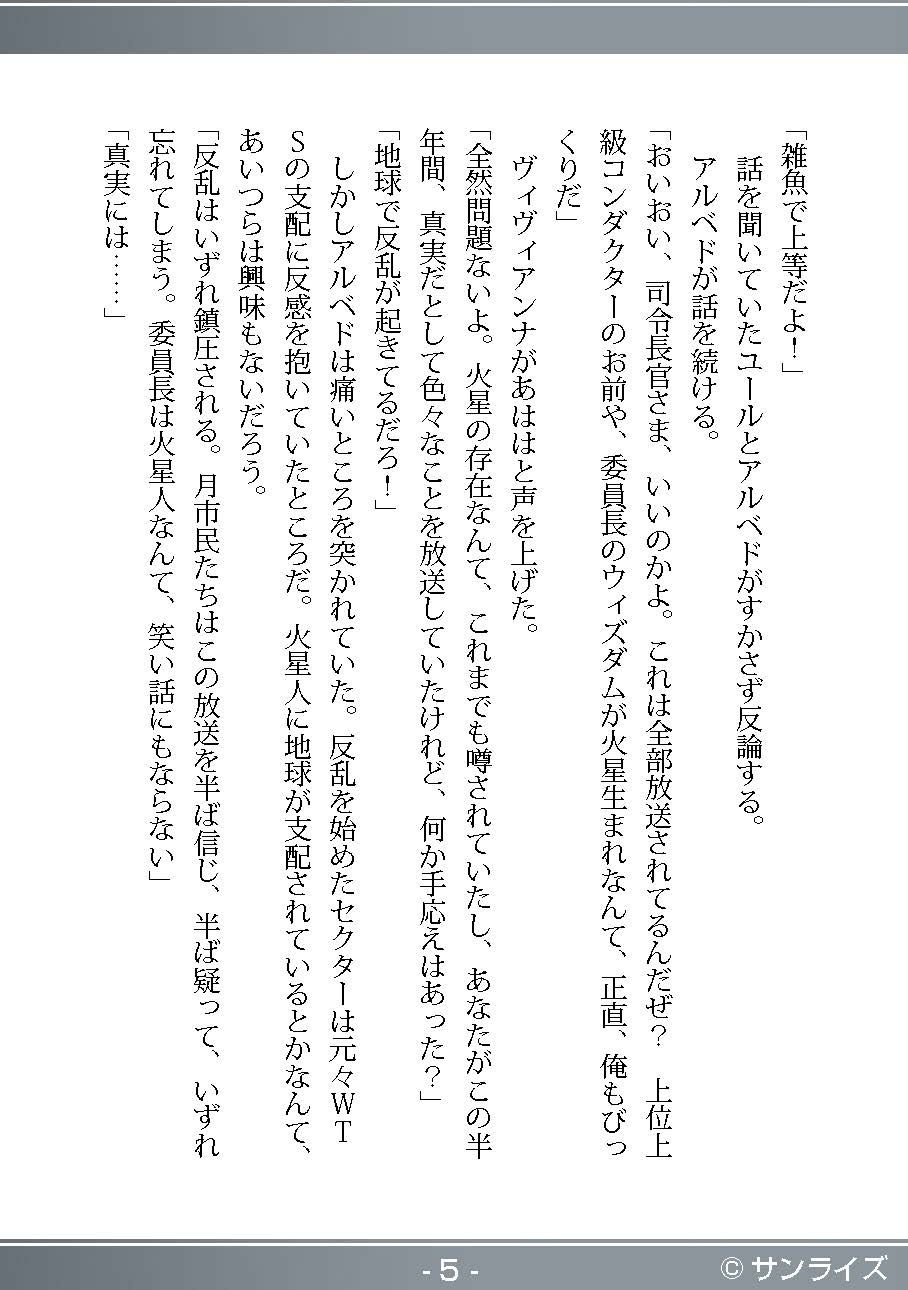 「雑魚で上等だよ！」
　話を聞いていたユールとアルベドがすかさず反論する。
　アルベドが話を続ける。
「おいおい、司令長官さま、いいのかよ。これは全部放送されてるんだぜ？　上位上
級コンダクターのお前や、委員長のウィズダムが火星生まれなんて、正直、俺もびっ
くりだ」
　ヴィヴィアンナがあははと声を上げた。
「全然問題ないよ。火星の存在なんて、これまでも噂されていたし、あなたがこの半
年間、真実だとして色々なことを放送していたけれど、何か手応えはあった？」
「地球で反乱が起きてるだろ！」
　しかしアルベドは痛いところを突かれていた。反乱を始めたセクターは元々ＷＴ
Ｓの支配に反感を抱いていたところだ。火星人に地球が支配されているとかなんて、
あいつらは興味もないだろう。
「反乱はいずれ鎮圧される。月市民たちはこの放送を半ば信じ、半ば疑って、いずれ
忘れてしまう。委員長は火星人なんて、笑い話にもならない」
「真実には……」
- 5 -
© サンライズ